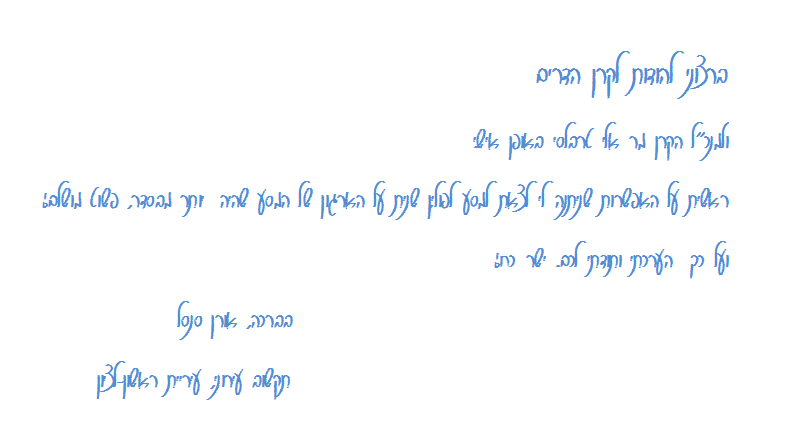 ברצוני להודות לקרן הדרים
ולמנכ"ל הקרן מר אלי טרבלסי באופן אישי
ראשית על האפשרות שניתנה לי לצאת למסע לפולין שנית על הארגון של המסע שהיה יותר מבסדר, פשוט מושלם!
ועל כך הערכתי ותודתי לכם. ישר כח!
בברכה, אורן סנסל
תקשוב עירוני, עיריית ראשון-לציון